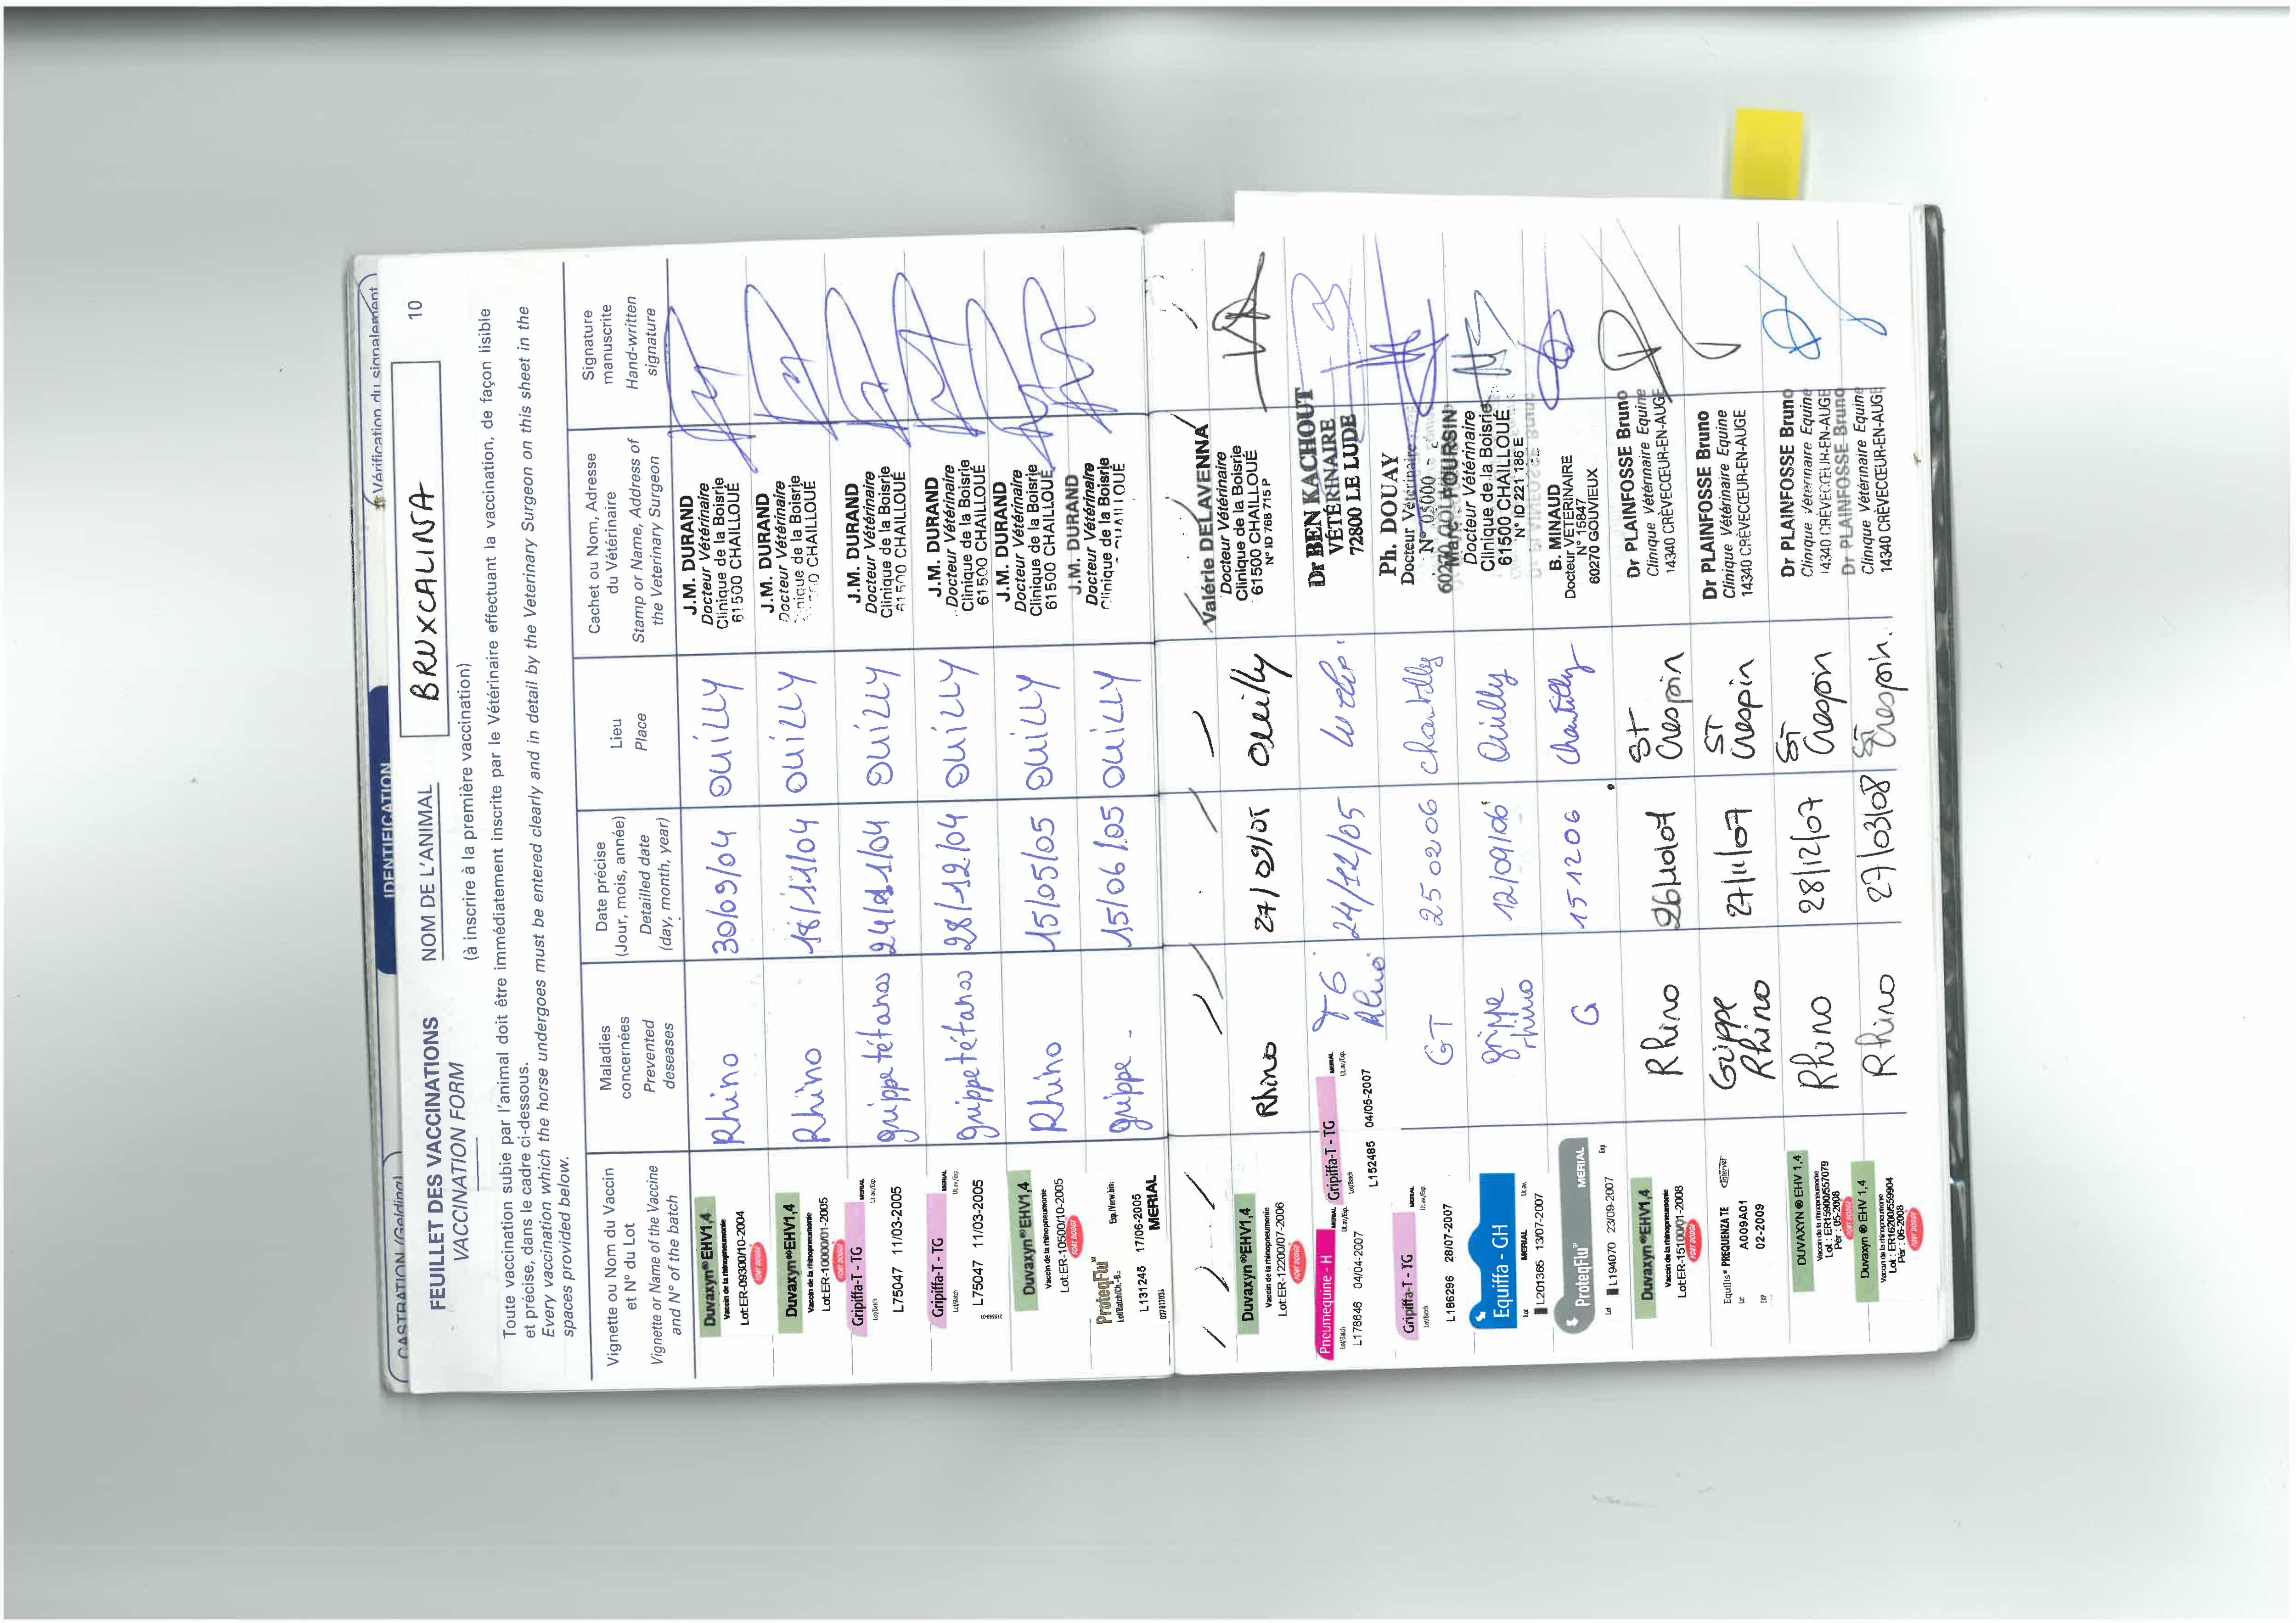 Vérification du signalement
IDENTIFICATION
CASTRATION (Gelding)
FEUILLET DES VACCINATIONS
VACCINATION FORM
NOM DE L'ANIMAL
BRUXCALINA
10
(à inscrire à la première vaccination)
Toute vaccination subie par l'animal doit être immédiatement inscrite par le Vétérinaire effectuant la vaccination, de façon lisible
et précise, dans le cadre ci-dessous.
Every vaccination which the horse undergoes must be entered clearly and in detail by the Veterinary Surgeon on this sheet in the
spaces provided below.
Vignette ou Nom du Vaccin
et N° du Lot
Vignette or Name of the Vaccine
and N° of the batch
Maladies
concernées
Prevented
deseases
Date précise
(Jour, mois, année)
Detailled date
(day, month, year)
Lieu
Place
Cachet ou Nom, Adresse
du Vétérinaire
Stamp or Name, Address of
the Veterinary Surgeon
Signature
manuscrite
Hand-written
signature
Duvaxyn® EHV1,4
Vaccin de la rhinopneumonie
Lot:ER-09300/10-2004
FORT DODGE
Rhino
30/09/04
OUILLY
J.M. DURAND
Docteur Vétérinaire
Clinique de la Boisrie
61500 CHAILLOUÉ
Duvaxyn®EHV1,4
Vaccin de la rhinopneumonie
Lot:ER-10000/01-2005
FORT DODGE
Rhino
18/11/04
OUILLY
J.M. DURAND
Docteur Vétérinaire
Clinique de la Boisrie
CHAILLOUÉ
Gripiffa-T - TG
MERIAL
Lot/Batch
Ut.av./Exp.
L75047 11/03-2005
grippe tétanos
24/11/04
OUILLY
J.M. DURAND
Docteur Vétérinaire
Clinique de la Boisrie
61500 CHAILLOUÉ
Gripiffa-T - TG
MERIAL
Lot/Batch
Ut.av./Exp.
L75047 11/03-2005
grippe tétanos
28/12/04
OUILLY
J.M. DURAND
Docteur Vétérinaire
Clinique de la Boisrie
61500 CHAILLOUÉ
Duvaxyn®EHV1,4
Vaccin de la rhinopneumonie
Lot:ER-10500/10-2005
FORT DODGE
Rhino
15/05/05
OUILLY
J.M. DURAND
Docteur Vétérinaire
Clinique de la Boisrie
61500 CHAILLOUÉ
ProteqFlu
L131245 17/06-2005
MERIAL
grippe -
15/06/05
OUILLY
J.M. DURAND
Docteur Vétérinaire
Clinique de la Boisrie
Duvaxyn ®EHV1,4
Vaccin de la rhinopneumonie
Lot:ER-12200/07-2006
FORT DODGE
Rhino
27/09/05
Ouilly
Valérie DELAVENNA
Docteur Vétérinaire
Clinique de la Boisrie
61500 CHAILLOUÉ
N° ID 768 715 P
Pneumequine - H
MERIAL
Lot/Batch
Ut.av./Exp.
L178646 04/04-2007
Gripiffa-T - TG
MERIAL
Lot/Batch
Ut.av./Exp.
L152485 04/05-2007
TG
Rhino
24/12/05
Dr BEN KACHOUT
VÉTÉRINAIRE
72800 LE LUDE
Gripiffa-T - TG
MERIAL
Lot/Batch
Ut.av./Exp.
L186296 28/07-2007
GT
25 02 06
Chantilly
Ph. DOUAY
Docteur Vétérinaire
Equiffa - GH
MERIAL
Lot
Ut.av.
L201365 13/07-2007
grippe
rhino
12/09/06
Ouilly
Marc FOURSIN
Docteur Vétérinaire
Clinique de la Boisrie
61500 CHAILLOUÉ
N° ID 221 186 E
ProteqFlu
MERIAL
Lot
Exp
L194070 23/09-2007
G
15 12 06
Chantilly
B. MINAUD
Docteur VÉTÉRINAIRE
N° 15847
60270 GOUVIEUX
Duvaxyn®EHV1,4
Vaccin de la rhinopneumonie
Lot:ER-15100/01-2008
FORT DODGE
Rhino
26/10/07
ST
Crespin
Dr PLAINFOSSE Bruno
Clinique Vétérinaire Equine
14340 CRÈVECŒUR-EN-AUGE
Equilis® PREQUENZA TE
Intervet
Lot
A009A01
EXP
02-2009
Grippe
Rhino
27/11/07
ST
Crespin
Dr PLAINFOSSE Bruno
Clinique Vétérinaire Equine
14340 CRÈVECŒUR-EN-AUGE
DUVAXYN ® EHV 1,4
Vaccin de la rhinopneumonie
Lot : ER15900/557079
Pér : 05-2008
FORT DODGE
Rhino
28/12/07
ST
Crespin
Dr PLAINFOSSE Bruno
Clinique Vétérinaire Equine
14340 CRÈVECŒUR-EN-AUGE
Duvaxyn ® EHV 1,4
Vaccin de la rhinopneumonie
Lot : ER16200/559904
Pér : 06-2008
FORT DODGE
Rhino
27/03/08
ST
Crespin.
Dr PLAINFOSSE Bruno
Clinique Vétérinaire Equine
14340 CRÈVECŒUR-EN-AUGE